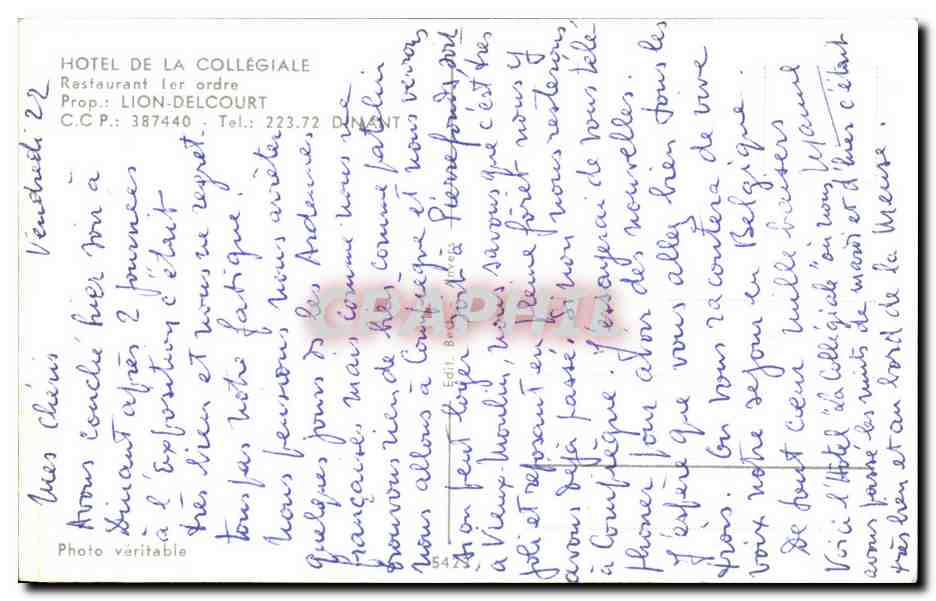 HOTEL DE LA COLLÉGIALE
Restaurant 1er ordre
Prop.: LION-DELCOURT
C.C P.: 387440 - Tel.: 223.72 DINANT
Vendredi 22
Mes chéris
Avons couché hier soir à
Dinant après 2 journées
à l'Exposition c'était
très bien et nous ne regret-
tons pas notre fatigue!
Nous pensions nous arrêter
quelques jours ds les Ardennes
françaises mais comme nous ne
trouvons rien de très comme patelin
nous allons à Compiègne et nous verrons
si on peut loger soit à Pierrefonds soit
à Vieux-Moulin, nous savons que c'est très
joli et reposant en pleine forêt nous y
avons déjà passé, sinon nous resterons
à Compiègne. J'envoyai de vous télé
phoner pour avoir des nouvelles.
J'espère que vous allez bien tous les
trois. On vous racontera de vive
voix notre séjour en Belgique.
De tout cœur mille baisers
Mamie
Voici l'Hôtel "la Collégiale" où nous
avons passé les nuits de mardi et d'hier c'était
très bien et au bord de la Meuse.
Photo véritable
Edit.
5423
CPAPHIL